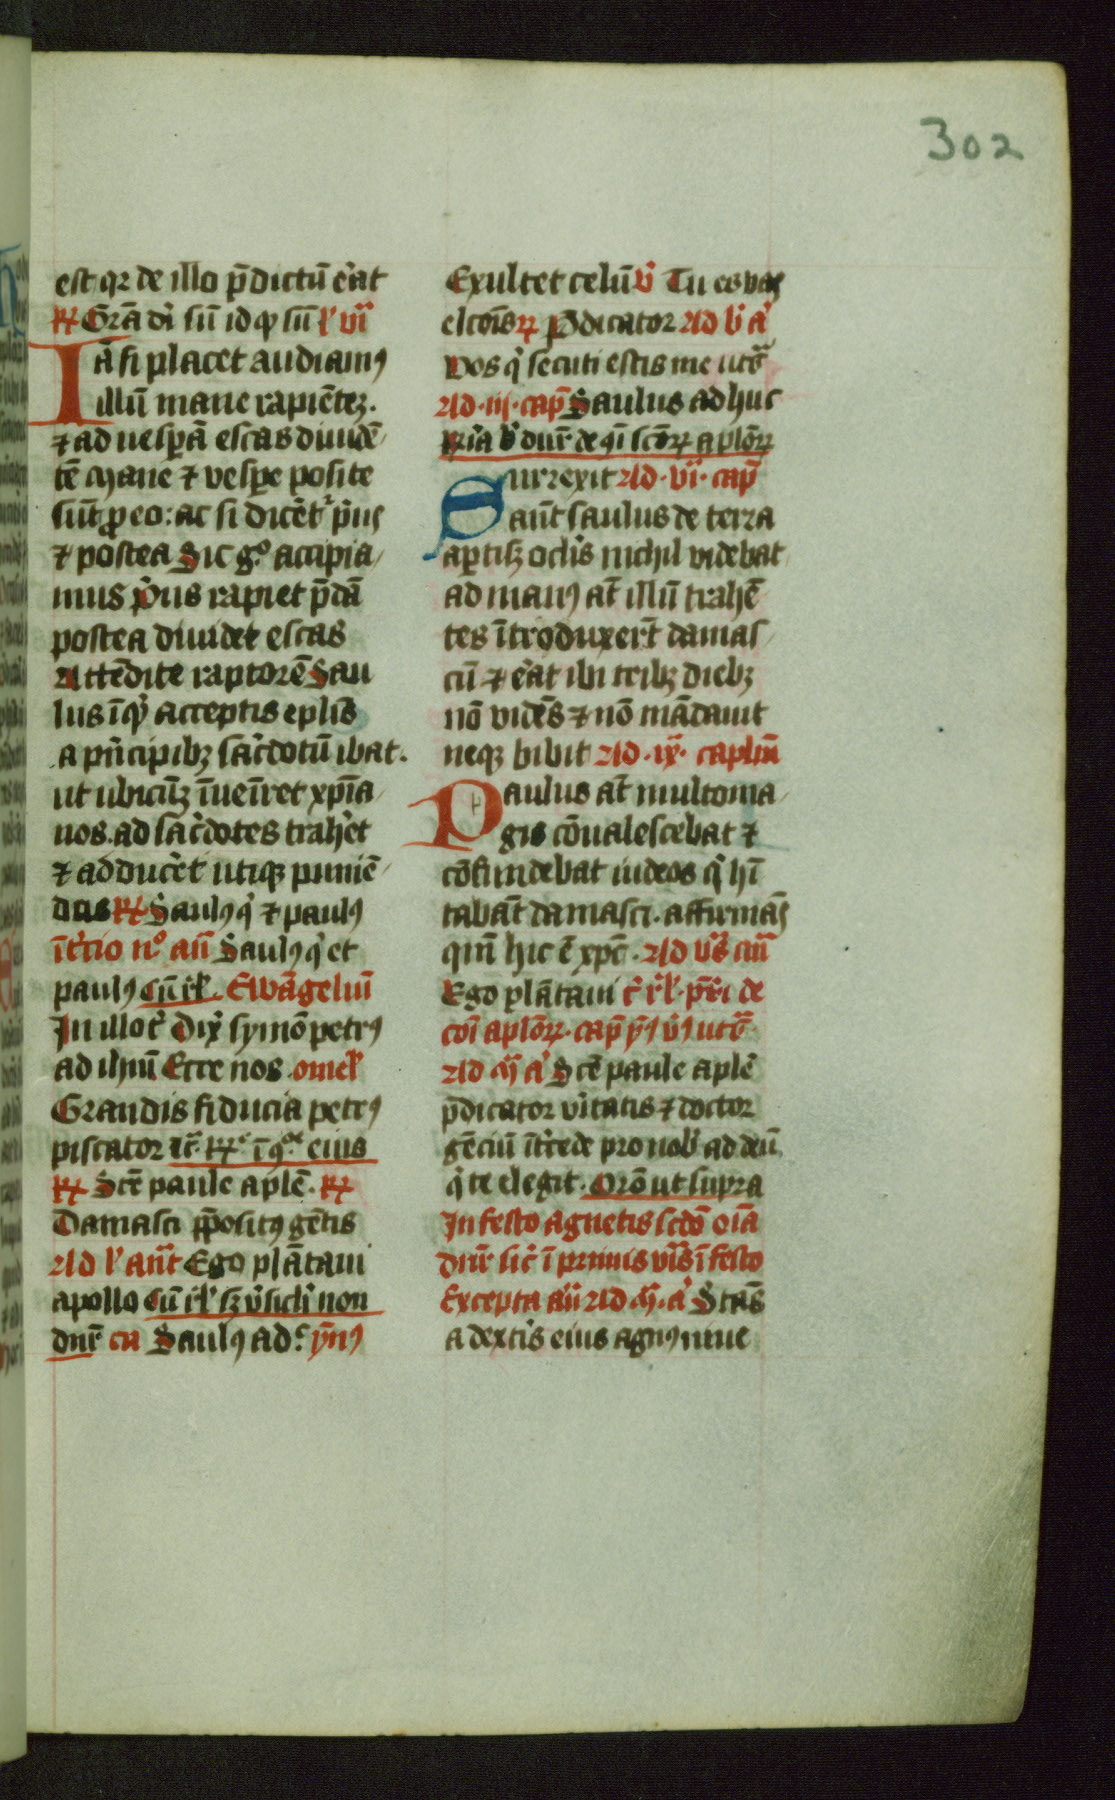 302
est qr de illo p̄dictū erat
R Gr̄a dī sū id qd sū l' vii
Iā si placet audiamꝰ
illū mane rapiētez.
⁊ ad uesꝑā escas diuidē
tē Mane ⁊ vespe posite
sūt ꝓ eo: ac si dicēt' pīus
⁊ postea Sic g° accipia
mus Pius rapiet p̄dā
postea diuidet escas
Attēdite raptorē Sau
lus īqꝫ acceptis eplīs
a pīncipibꝫ sac̄dotū ibat.
ut ubicūqꝫ īueīret xp̄ia
nos ad sac̄dotes trahēt
⁊ adducēt utiqꝫ puniē
dos R Saulꝰ qͥ ⁊ paulꝰ
īt̄cio n° añ Saulꝰ qͥ et
paulꝰ Cū rl'. Ewāgeliū
In illo t̄ Dix̄ symō petrꝰ
ad ihūm Ecce nos omel'
Grandis fiducia petrꝰ
piscator
R Scē paule aplē. R
Damasci p̄positꝰ gētis
Ad l' añt Ego plātaui
apollo Cū rl' sꝫ v̄sicl' non
dnr̄ ca Saulꝰ ad.c ȳnꝰ
Exultet celū v̄ Tu es vas
elcōis R Pdicator Ad b' a'
Vos qͥ secuti estis me ut
Ad .iii. cap̄ Saulus adhuc
de scōꝝ aplōꝝ
Surrexit Ad .vi. cap̄
aūt saulus de terra
aꝑtisqꝫ oclis nichil videbat
ad manꝰ at̄ illū trahē
tes ītroduxert̄ damas
cū ⁊ erat ibi tribꝫ diebꝫ
nō vidēs ⁊ nō mādauit
neqꝫ bibit Ad .ix. caplm̄
Paulus at̄ multo ma
gis cōualescebat ⁊
cōfundebat iudeos qͥ hī
tabāt damasci. affirmās
qm̄ hic ē xp̄c. Ad v̄s añ
Ego plātaui c̄ rl'. de
coī aplōꝝ. cap̄ ȳꝰ v̄ꝰ ut
Ad m̄ a' Scē paule aplē
p̄dicator v̄itatis ⁊ doctor
gēciū īt̄cede pro nob' ad deū
qͥ te elegit. Orō ut supra
In festo agnetis scdō oīa
dnr̄ sic̄ ī primis v̄is ī festo
Excepta añ Ad m̄. a' Stās
a dextis eius agnꝰ niue